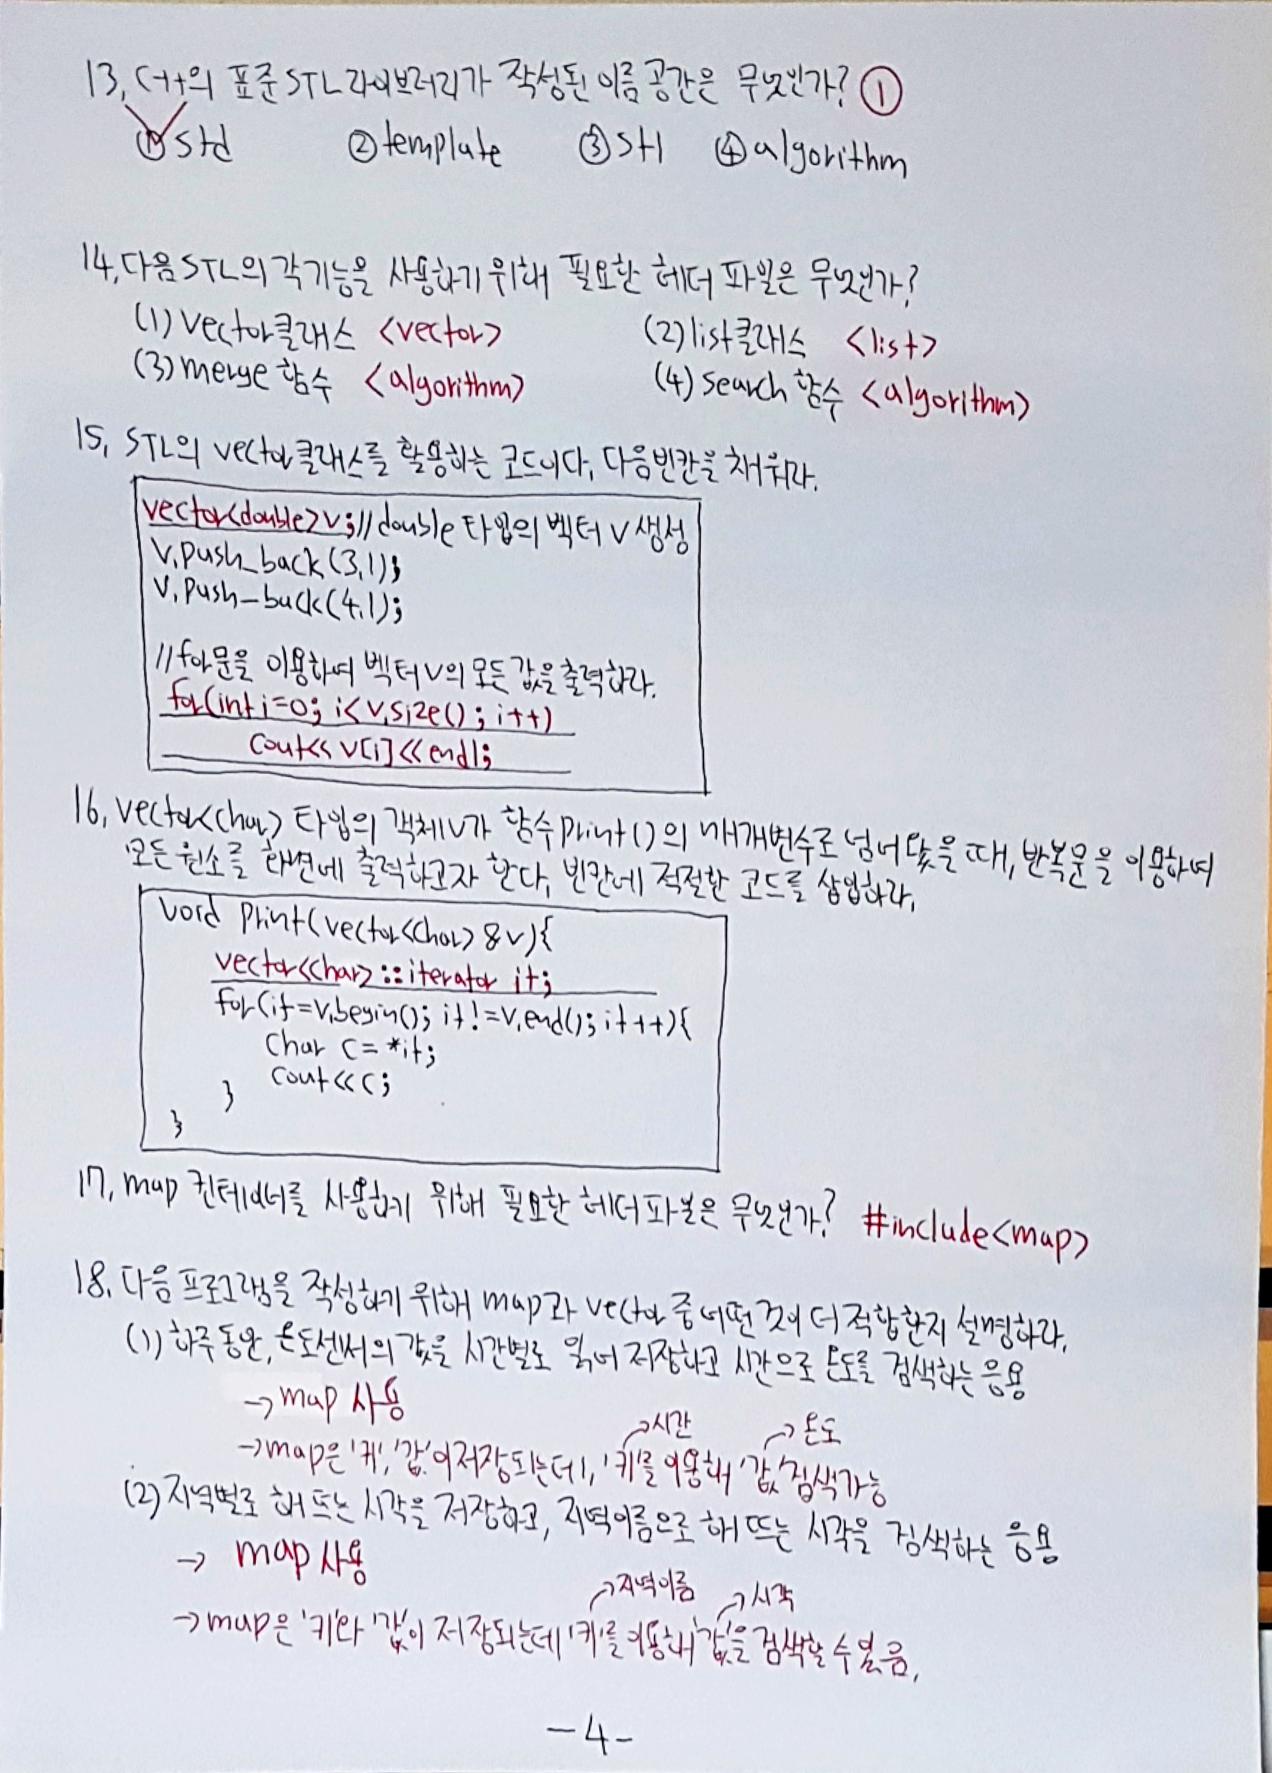 13, C++의 표준 STL 라이브러리가 작성된 이름 공간은 무엇인가? ①
① std ② template ③ stl ④ algorithm
14, 다음 STL의 각 기능을 사용하기 위해 필요한 헤더 파일은 무엇인가?
(1) vector클래스 <vector> (2) list클래스 <list>
(3) merge 함수 <algorithm> (4) search 함수 <algorithm>
15, STL의 vector클래스를 활용하는 코드이다, 다음 빈칸을 채워라.
vector<double>v; //double 타입의 벡터 v 생성
v.push_back(3.1);
v.push_back(4.1);
//for문을 이용하여 벡터 v의 모든 값을 출력하라.
for(int i=0; i<v.size(); i++)
cout<< v[i]<<endl;
16, vector<char> 타입의 객체 v가 함수 print()의 매개변수로 넘어왔을 때, 반복문을 이용하여
모든 원소를 화면에 출력하고자 한다, 빈칸에 적절한 코드를 삽입하라,
void print(vector<char> &v){
vector<char>::iterator it;
for(it=v.begin(); it!=v.end(); it++){
char c= *it;
cout<<c;
}
}
17, map 컨테이너를 사용하기 위해 필요한 헤더 파일은 무엇인가? #include<map>
18. 다음 프로그램을 작성하기 위해 map과 vector 중 어떤 것이 더 적합한지 설명하라.
(1) 하루 동안, 온도센서의 값을 시간별로 읽어 저장하고 시간으로 온도를 검색하는 응용
→ map 사용
→시간 →온도
→map은 '키', '값'이 저장되는데, '키'를 이용해 '값' 검색가능
(2) 지역별로 해 뜨는 시각을 저장하고, 지역이름으로 해 뜨는 시각을 검색하는 응용
→ map 사용
→지역이름 →시각
→map은 '키'와 '값'이 저장되는데 '키'를 이용해 '값'을 검색할 수 있음,
-4-